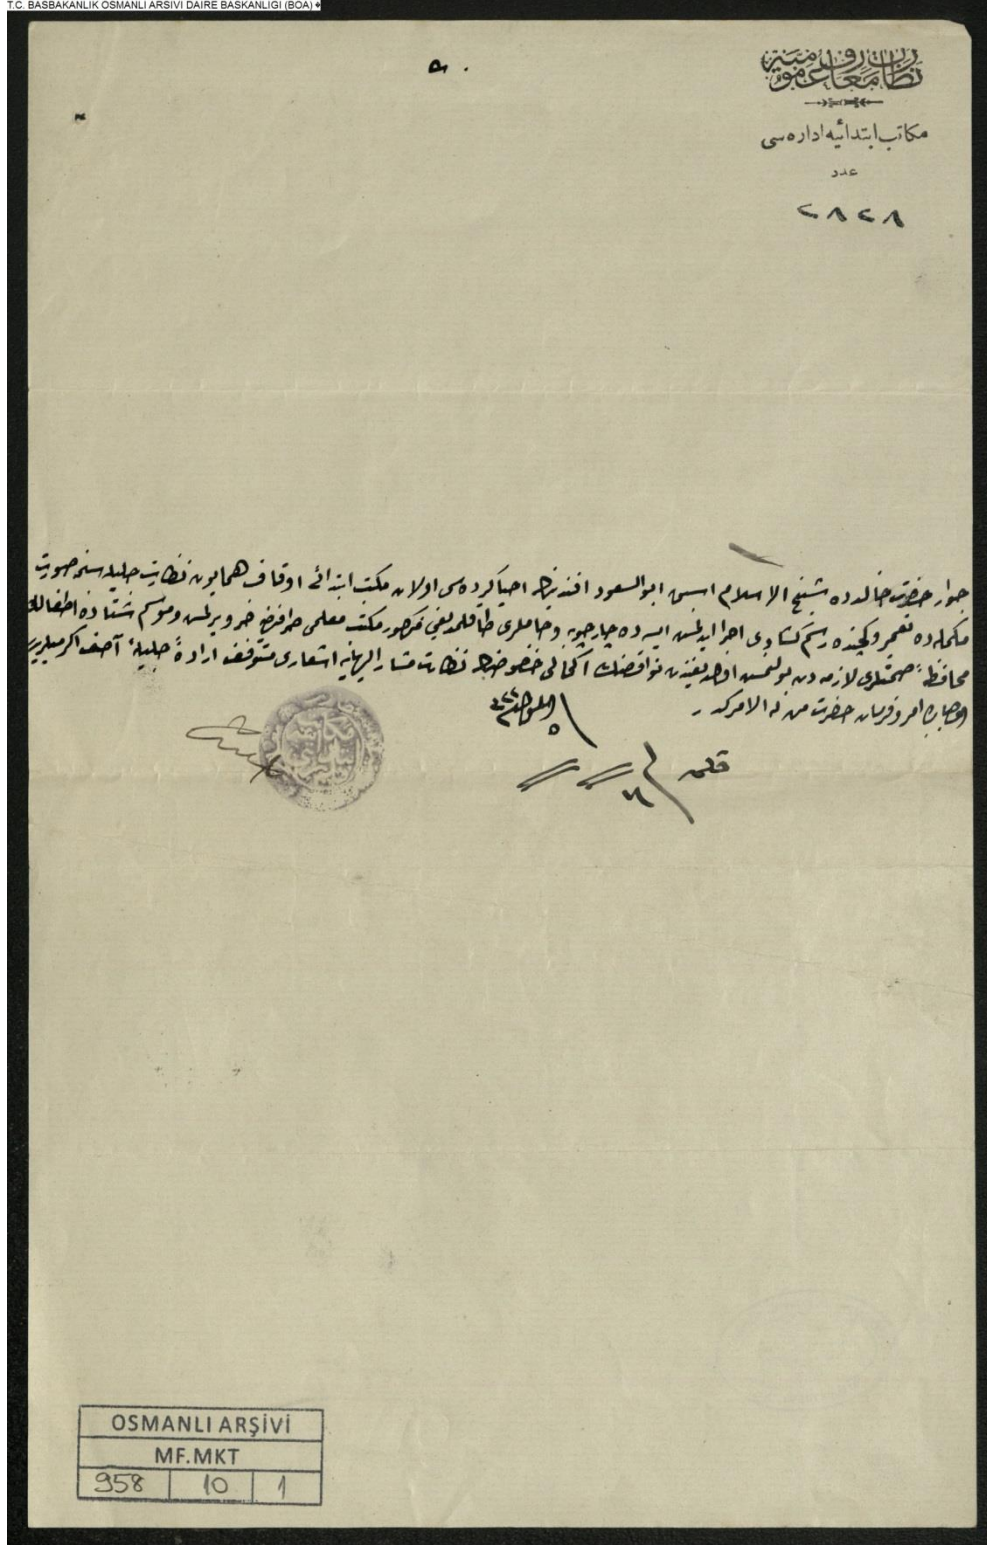 T.C. BASBAKANLIK OSMANLI ARSIVI DAIRE BASKANLIGI (BOA)
نظارت معارف عمومیه
مكاتب ابتدائیه اداره سی
عدد
٢٨٢٨
جوار حضرت خالدده شیخ الاسلام اسبق ابوالسعود افندینك احیا كرده سی اولان مكتب ابتدائی اوقاف همایون نظارت جلیله سنجه صورت
مكمله ده تعمیر و كچنده رسم كشادی اجرا ایدلمش ایسه ده چارچوبه و جاملری طاقلمدیغی مكتب معلمی طرفندن خبر ویرلمش و موسم شتاده اطفالك
محافظهٔ صحتلری لازمه دن بولنمش اولدیغندن نواقصنك اكمالی خصوصنك نظارت مشار الیهایه اشعاری متوقف ارادهٔ جلیلهٔ آصف اكرمیلریدر
اولبابده امر و فرمان حضرت من له الامركدر
قلمه
OSMANLI ARŞİVİ
MF.MKT
958 10 1